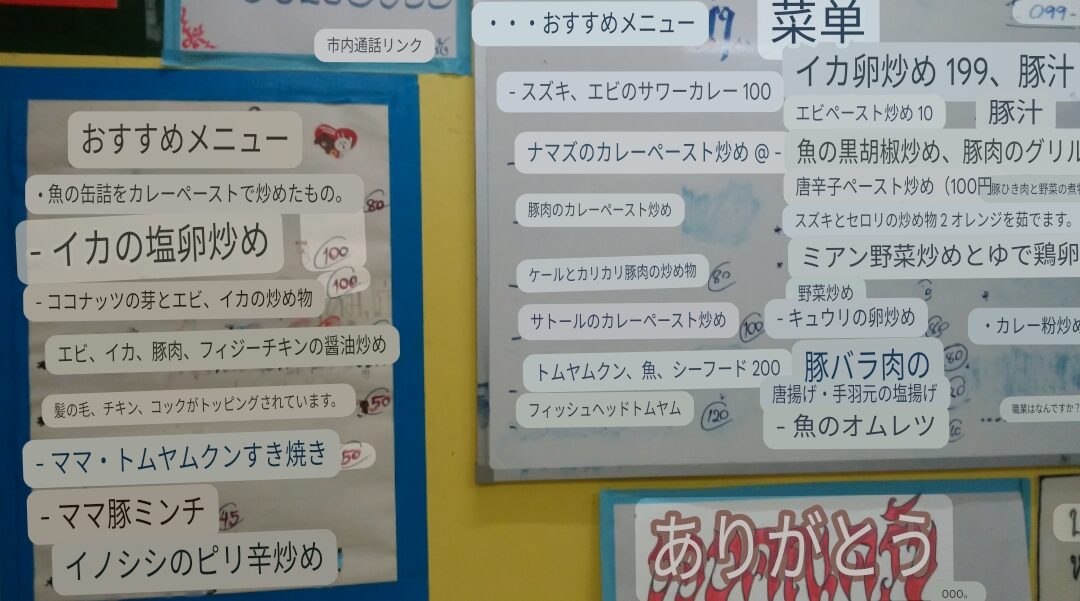 市内通話リンク
おすすめメニュー
・魚の缶詰をカレーペーストで炒めたもの。
80
- イカの塩卵炒め
100
100
- ココナッツの芽とエビ、イカの炒め物
エビ、イカ、豚肉、フィジーチキンの醤油炒め
髪の毛、チキン、コックがトッピングされています。
50
- ママ・トムヤムクンすき焼き
50
- ママ豚ミンチ
45
イノシシのピリ辛炒め
・・・おすすめメニュー
- スズキ、エビのサワーカレー 100
ナマズのカレーペースト炒め @ -
豚肉のカレーペースト炒め
ケールとカリカリ豚肉の炒め物
80
サトールのカレーペースト炒め
100
トムヤムクン、魚、シーフード 200
フィッシュヘッドトムヤム
120
菜单
099-
イカ卵炒め 199、豚汁
エビペースト炒め 10
豚汁
魚の黒胡椒炒め、豚肉のグリル
唐辛子ペースト炒め（100円
豚ひき肉と野菜の煮物
スズキとセロリの炒め物 2 オレンジを茹でます。
ミアン野菜炒めとゆで鶏卵
野菜炒め
- キュウリの卵炒め
・カレー粉炒め
豚バラ肉の
80
唐揚げ・手羽元の塩揚げ
職業はなんですか?
- 魚のオムレツ
ありがとう
ooo。